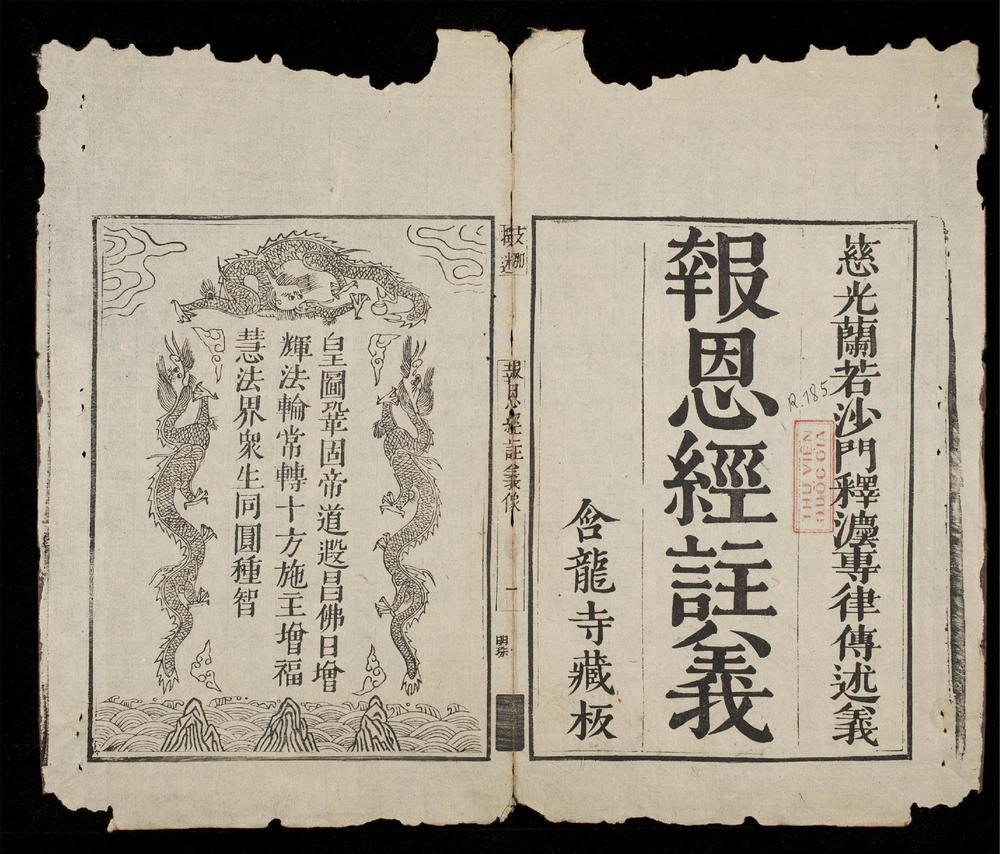 慈光蘭若沙門釋灋專律傳述義
報恩經註義
含龍寺藏板
R.785
THƯ VIỆN
QUỐC GIA
報恩經註義像
一
明琛
皇圖鞏固帝道遐昌佛日增
輝法輪常轉十方施主增福
慧法界衆生同圓種智